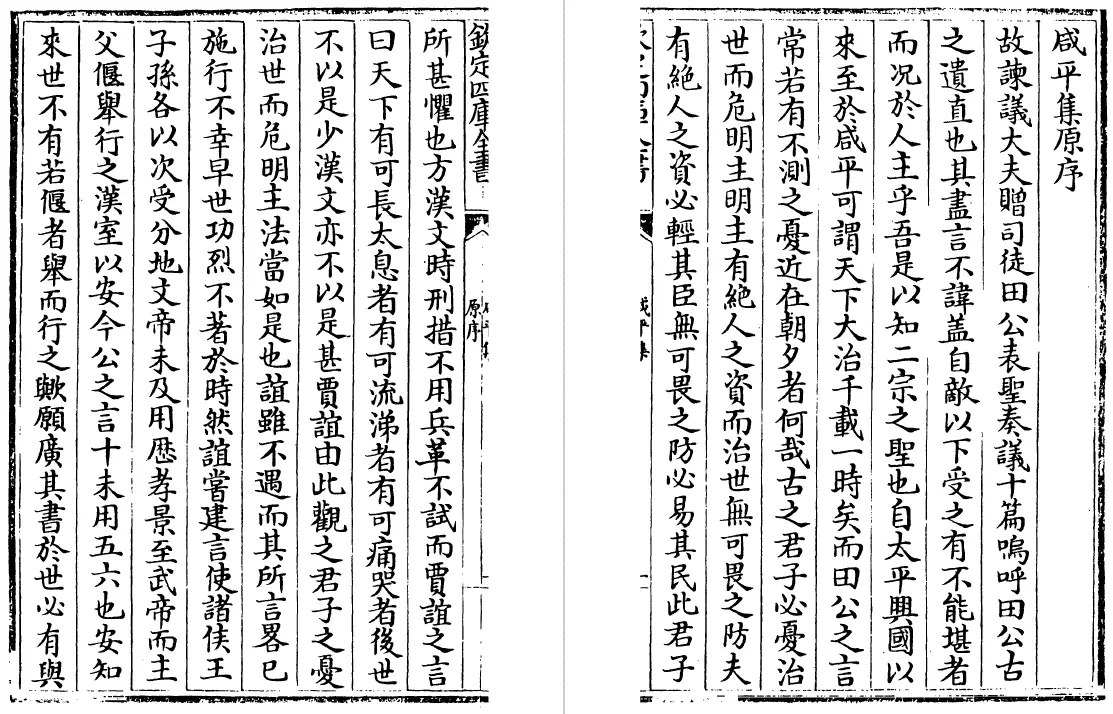 咸平集原序
故諫議大夫贈司徒田公表聖奏議十篇嗚呼田公古
之遺直也其盡言不諱盖自敵以下受之有不能堪者
而况於人主乎吾是以知二宗之聖也自太平興國以
來至於咸平可謂天下大治千載一時矣而田公之言
常若有不測之憂近在朝夕者何哉古之君子必憂治
世而危明主明主有絶人之資而治世無可畏之防夫
有絶人之資必輕其臣無可畏之防必易其民此君子
欽定四庫全書
原序
所甚懼也方漢文時刑措不用兵革不試而賈誼之言
曰天下有可長太息者有可流涕者有可痛哭者後世
不以是少漢文亦不以是甚賈誼由此觀之君子之憂
治世而危明主法當如是也誼雖不遇而其所言畧已
施行不幸早世功烈不著於時然誼嘗建言使諸侯王
子孫各以次受分地文帝未及用歴孝景至武帝而主
父偃舉行之漢室以安今公之言十未用五六也安知
來世不有若偃者舉而行之歟願廣其書於世必有與